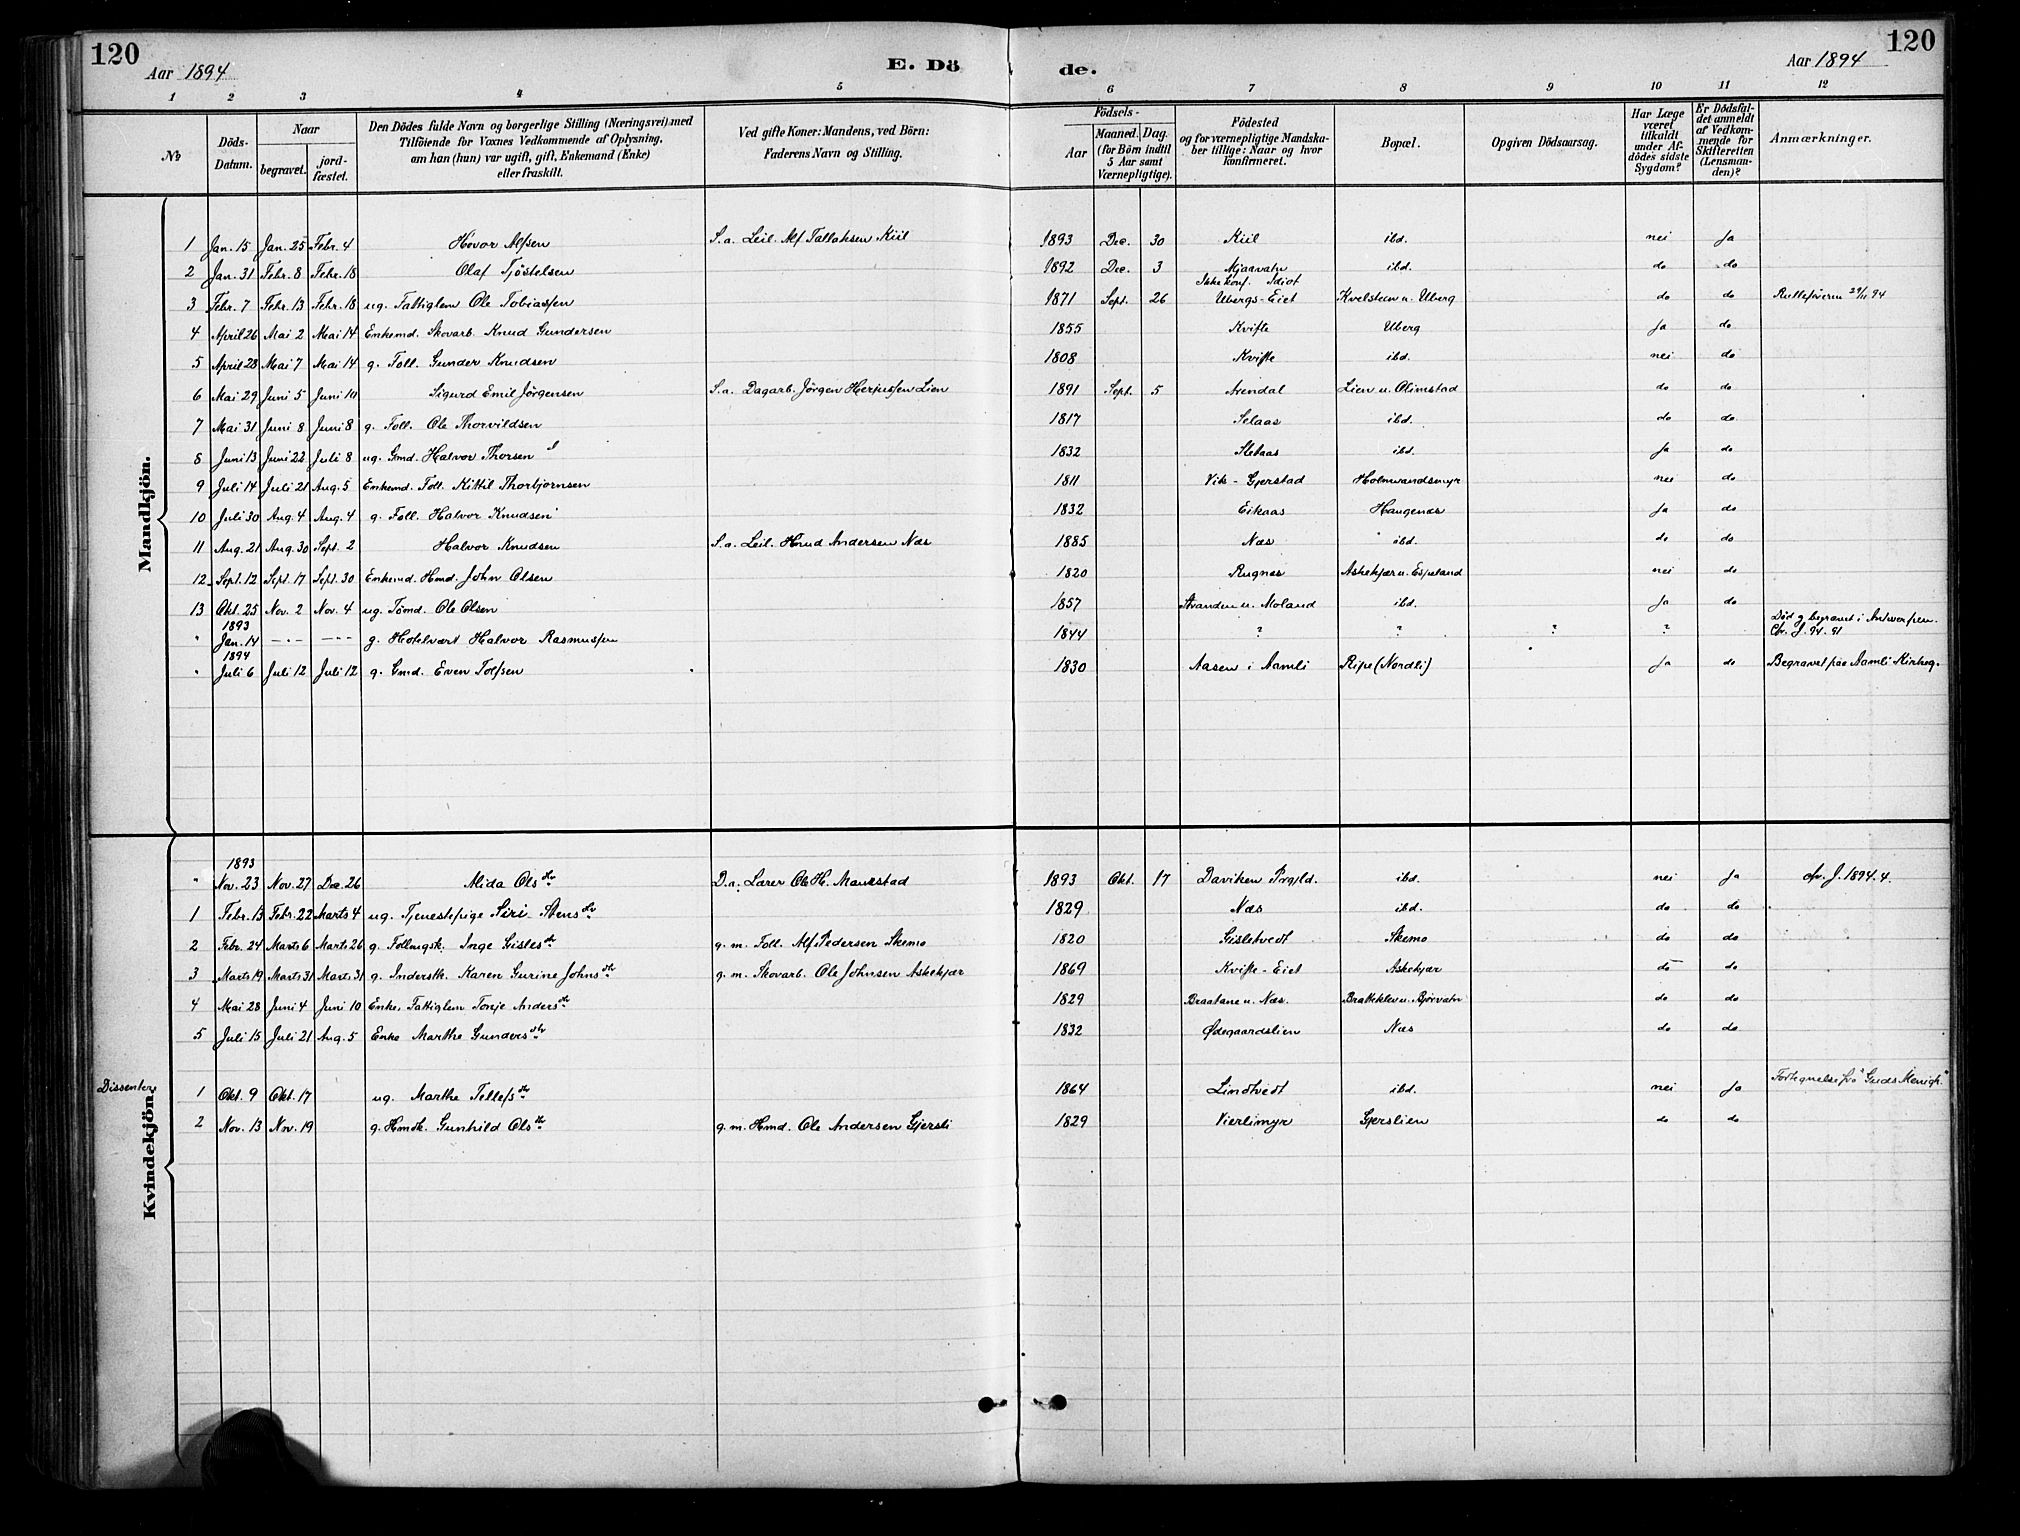 120
Aar 1894
E. Dö
de.
Aar 1894
120
1 2 3 4 5 6 7 8 9 10 11 12
№
Döds-Datum.
Naar
begravet.
jord-fæstet.
Den Dödes fulde Navn og borgerlige Stilling (Næringsvei) med
Tilföiende for Voxnes Vedkommende af Oplysning,
om han (hun) var ugift, gift, Enkemand (Enke)
eller fraskilt.
Ved gifte Koner: Mandens, ved Börn:
Faderens Navn og Stilling.
Födsels-
Aar
Maaned. Dag.
(for Börn indtil
5 Aar samt
Værnepligtige).
Födested
og for værnepligtige Mandska-
ber tillige: Naar og hvor
konfirmeret.
Bopæl.
Opgiven Dödsaarsag.
Har Læge
været
tilkaldt
under Af-
dödes sidste
Sygdom?
Er Dödsfal-
det anmeldt
af Vedkom-
mende for
Skifteretten
(Lensman-
den)?
Anmærkninger.
Mandkjön.
1 Jan. 15 Jan. 25 Febr. 4 Hovor Alfsen S. a. Leil. Alf Tallaksen Kiil 1893 Dec. 30 Kiil ibd. nei ja
2 Jan. 31 Febr. 8 Febr. 18 Olaf Tjøstelsen 1892 Dec. 3 Mjaavatn ibd. do do
Ikke konf. Idiot
3 Febr. 7 Febr. 13 Febr. 18 ug. Fattiglem Ole Tobiassen 1871 Sept. 26 Ubergs-Eiet Kvelsteen u. Uberg do do
4 April 26 Mai 2 Mai 14 Enkemd. Skovarb. Knud Gundersen 1855 Kvifte Uberg ja do
5 April 28 Mai 7 Mai 14 g. Foll. Gunder Knudsen 1808 Kvifte ibd. nei do
6 Mai 29 Juni 5 Juni 10 Sigurd Emil Jörgensen S. a. Dagarb. Jörgen Herjusen Lien 1891 Sept. 5 Arendal Lien u. Olimstad do do
7 Mai 31 Juni 8 Juni 8 g. Foll. Ole Thorvildsen 1817 Selaas ibd. do do
8 Juni 13 Juni 22 Juli 8 ug. Gmd. Halvor Thorsen 1832 ibd. ja do
9 Juli 14 Juli 21 Aug. 5 Enkemd. Foll. Kittil Thorbjørnsen 1811 Vik-Gjerstad Holmvandsmyr nei do
10 Juli 30 Aug. 4 Aug. 4 g. Foll. Halvor Knudsen 1832 Eikaas Haugenes ja do
11 Aug. 21 Aug. 30 Sept. 2 Halvor Knudsen S. a. Leil. Knud Andersen Næs 1885 Næs ibd. do do
12 Sept. 12 Sept. 17 Sept. 30 Enkemd. Hmd. John Olsen 1820 Rugnes Askekjær u. Espeland nei do
13 Okt. 25 Nov. 2 Nov. 4 ug. Tømd. Ole Olsen 1857 Stranden u. Moland ibd. ja do
1893
" Jan. 14 — — g. Hotelvært Halvor Rasmussen 1844 ? ? ? ? Død og begravet i Antwerpen.
Cfr. J. 94. 91
1894
" Juli 6 Juli 12 Juli 12 g. Gmd. Even Tolfsen 1830 Aasen i Aamli Ripe (Nordli) ja do Begravet paa Aamli Kirkeg.
Kvindekjön.
1893
" Nov. 23 Nov. 27 Dec. 26 Alida Olsdtr D. a. Lærer Ole H. 1893 Okt. 17 Daviken Prgjld. ibd. nei ja cfr. J. 1894. 4.
1 Febr. 13 Febr. 22 Marts 4 ug. Tjenestepige Siri Stensdtr 1829 Næs ibd. do do
2 Febr. 24 Marts 6 Marts 26 g. Follmgsk. Inge Gislesdtr g. m. Foll. Alf Pedersen Skemo 1820 Gisletvedt Skemo do do
3 Marts 19 Marts 31 Marts 31 g. Inderstk. Karen Gurine Johnsdtr g. m. Skovarb. Ole Johnsen Askekjær 1869 Kvifte-Eiet Askekjær do do
4 Mai 28 Juni 4 Juni 10 Enke, Fattiglem Tonje Andersdtr 1829 Braatane u. Næs. Bratteklev u. Bjørvatn do do
5 Juli 15 Juli 21 Aug. 5 Enke Marthe Gundersdtr 1832 Ødegaardslien Næs do do
Dissentere
1 Okt. 9 Okt. 17 ug. Marthe Tellefsdtr 1864 Lindtvedt ibd. nei ja Fortegnelse fra "Guds Menigh."
2 Nov. 13 Nov. 19 g. Hmdk. Gunhild Olsdtr g. m. Hmd. Ole Andersen Gjersli 1829 Vierlimyr Gjerslien do do